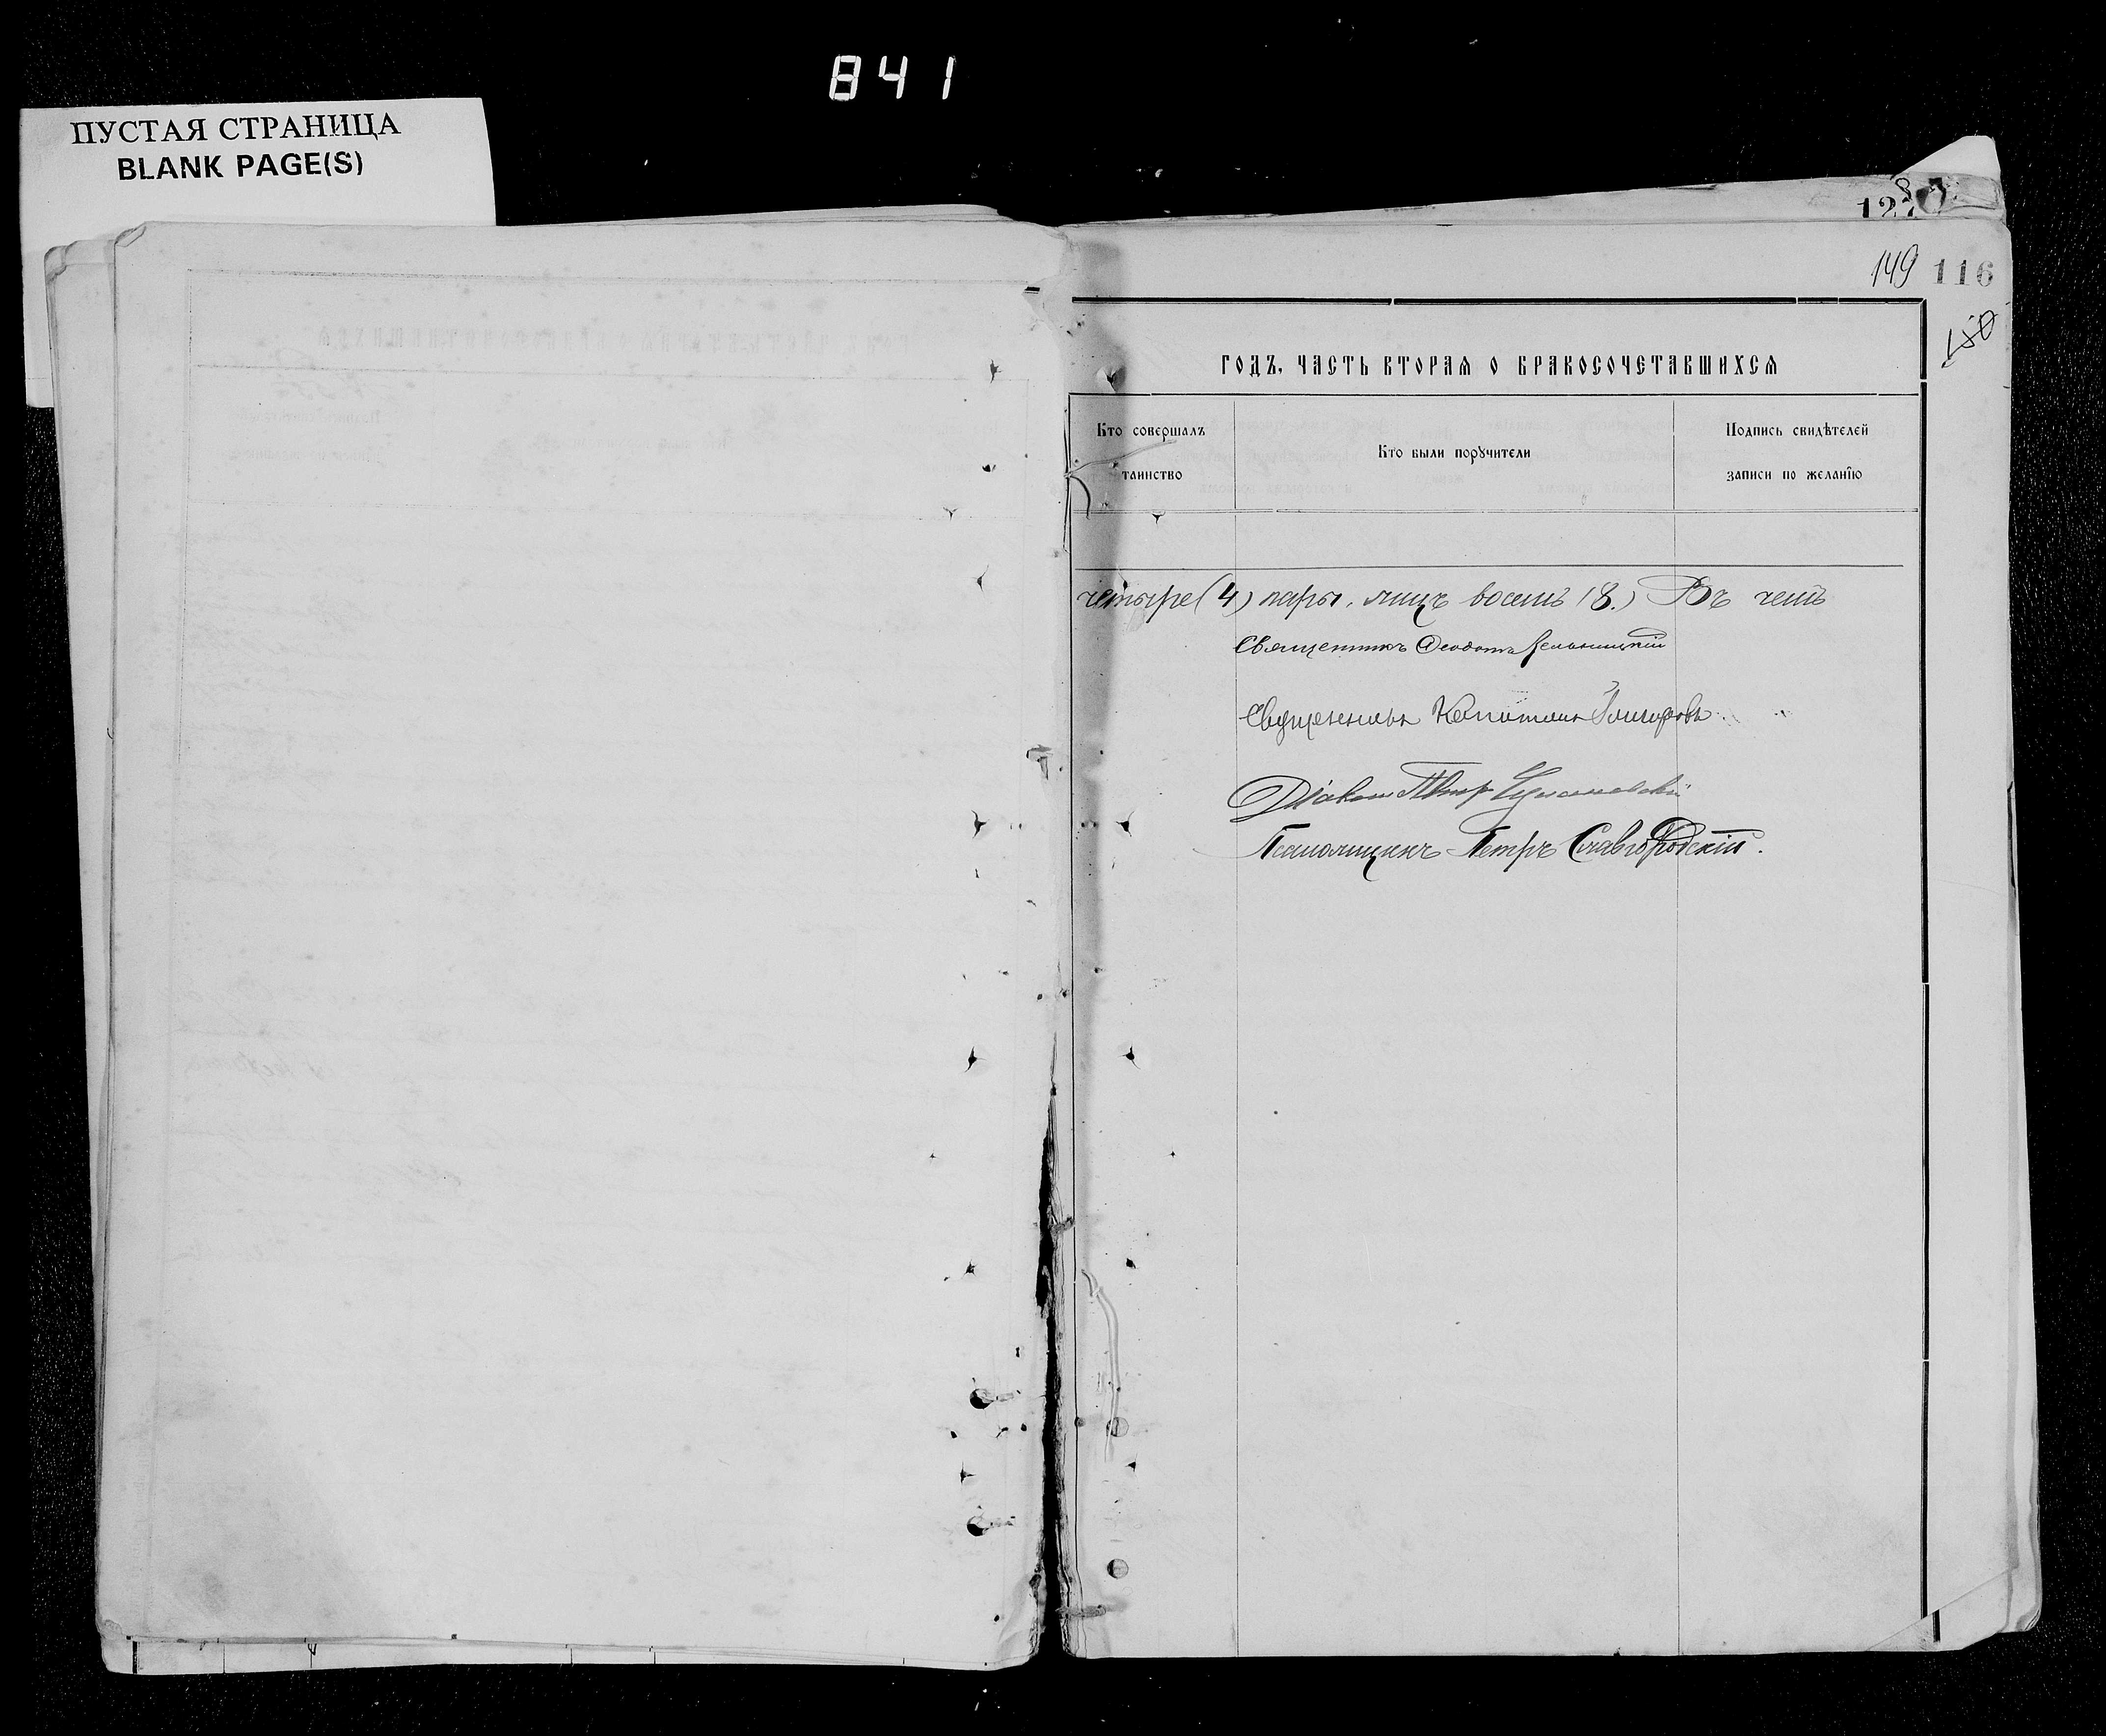 841
ПУСТАЯ СТРАНИЦА
BLANK PAGE(S)
149 116
150
ГОДЪ, ЧАСТЬ ВТОРАѦ О БРАКОСОЧЕТАВШИХСѦ
Кто совершалъ
таинство
Кто были порꙋчители
Подпись свидѣтелей
записи по желанїю
четыре (4) пары, лицъ восемь (8.) Въ чемъ
Священникъ Ѳеодотъ
Священникъ Капитонъ
Діаконъ Петръ
Псаломщикъ Петръ Славгородскій.